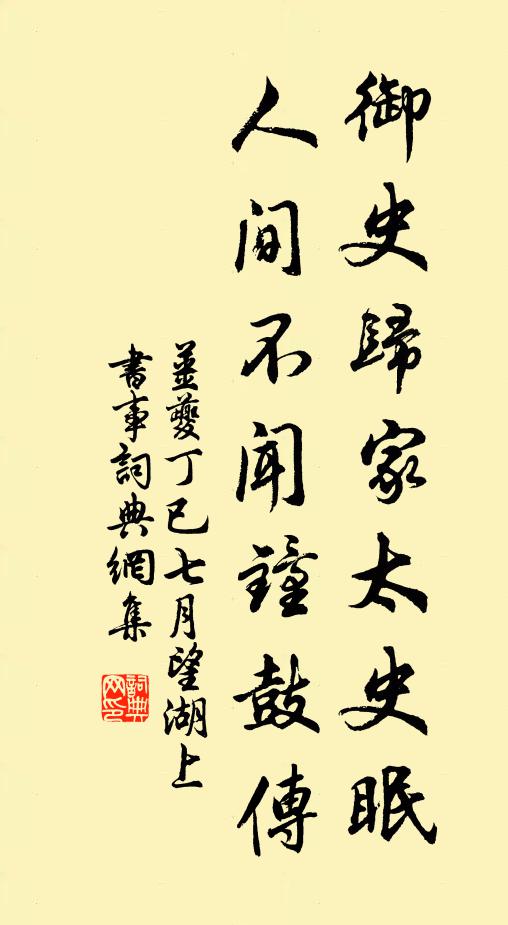 御史歸家太史眠
人间不闻鐘鼓傳
姜夔丁巳七月望湖上
書事詞典網集
詞典
网印